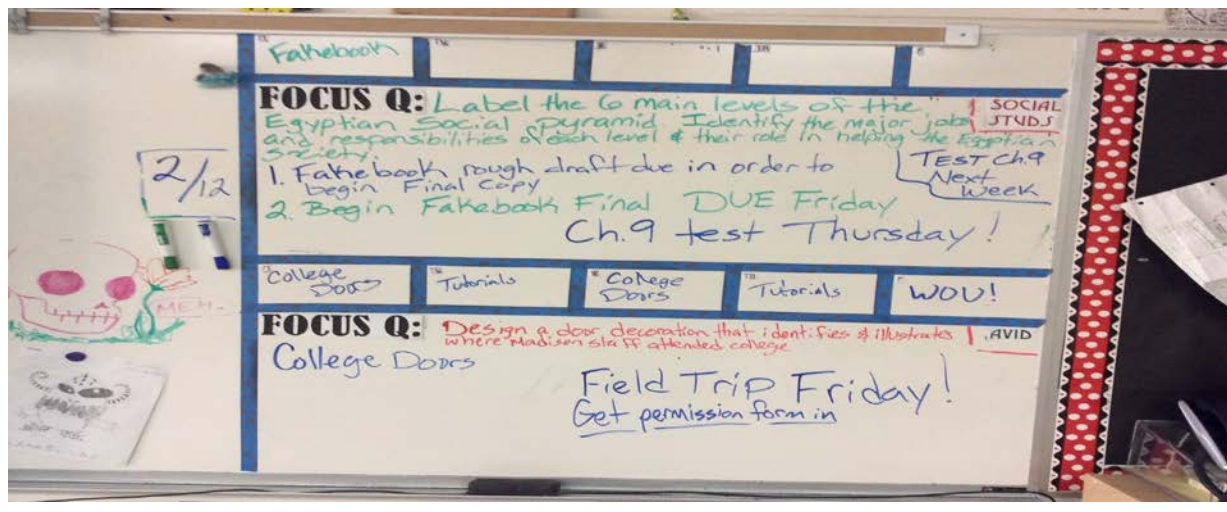 Fakebook
FOCUS Q: Label the 6 main levels of the
Egyptian Social pyramid. Identify the major jobs
and responsibilities of each level & their role in helping the Egyptian
Society.
SOCIAL
STUDS
1. Fakebook rough draft due in order to
begin Final Copy
2. Begin Fakebook Final DUE Friday
TEST Ch.9
Next
Week
Ch.9 test Thursday!
2/12
MEH.
College
Doors
Tutorials
College
Doors
Tutorials
WOU!
FOCUS Q: Design a door decoration that identifies & illustrates
where Madison staff attended college
AVID
College Doors
Field Trip Friday!
Get permission form in